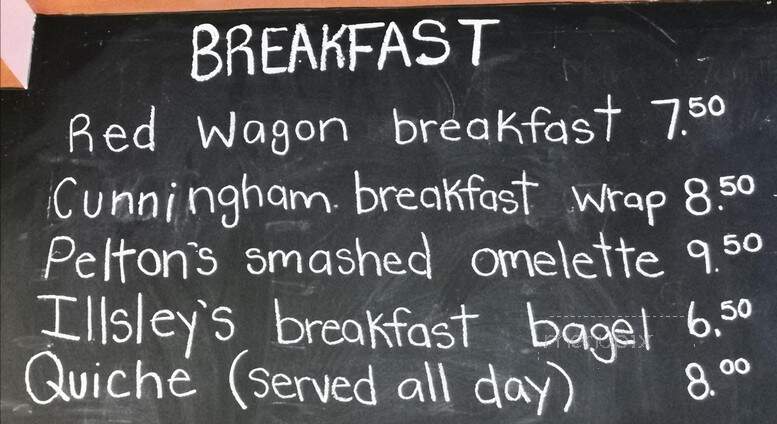 BREAKFAST
Red Wagon breakfast 7.50
Cunningham breakfast wrap 8.50
Pelton's smashed omelette 9.50
Illsley's breakfast bagel 6.50
Quiche (served all day) 8.00